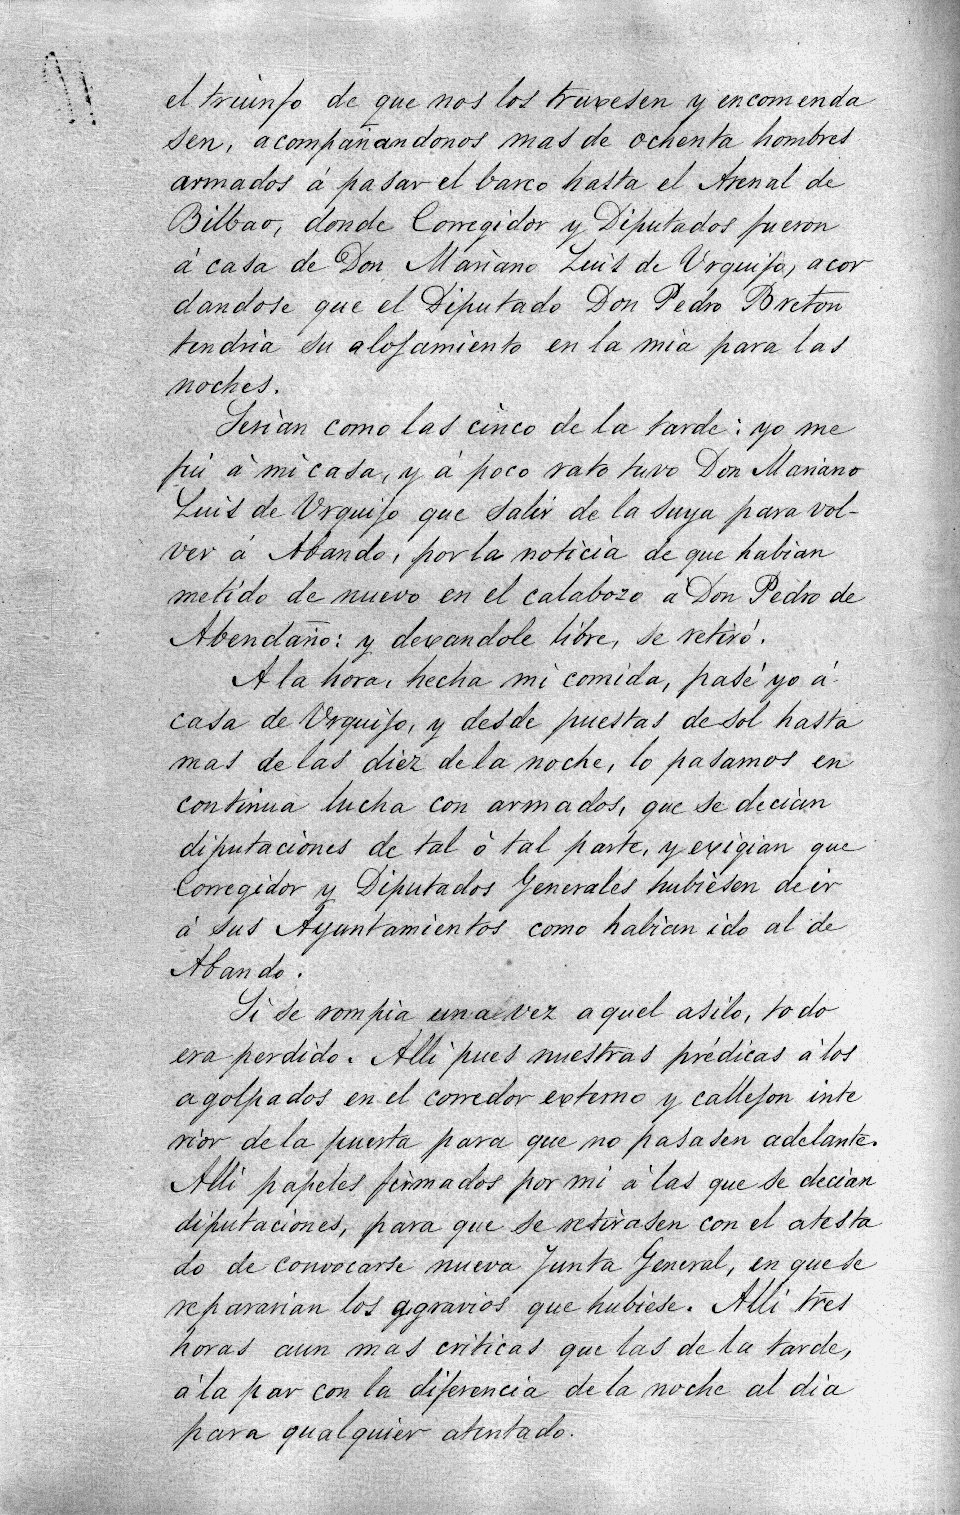 el triunfo de que nos los truxesen y encomenda
sen, acompañandonos mas de ochenta hombres
armados á pasar el barco hasta el Arenal de
Bilbao, donde Corregidor y Diputados fueron
á casa de Don Mariano Luis de Urquijo, acor
dandose que el Diputado Don Pedro Breton
tendria su alojamiento en la mia para las
noches.
Serian como las cinco de la tarde: yo me
fui á mi casa, y á poco rato tuvo Don Mariano
Luis de Urquijo que salir de la suya para vol-
ver á Abando, por la noticia de que habian
metido de nuevo en el calabozo á Don Pedro de
Abendaño: y dexandole libre, se retiró.
A la hora, hecha mi comida, pasé yo á
casa de Urquijo, y desde puestas de sol hasta
mas de las diez de la noche, lo pasamos en
continua lucha con armados, que se decian
diputaciones de tal ó tal parte, y exigian que
Corregidor y Diputados Generales hubiesen de ir
á sus Ayuntamientos como habian ido al de
Abando.
Si se rompia una vez aquel asilo, todo
era perdido. Alli pues nuestras prédicas á los
agolpados en el corredor externo y callejon inte
rior de la puerta para que no pasasen adelante.
Alli papeles firmados por mi á las que se decian
diputaciones, para que se retirasen con el atesta
do de convocarse nueva Junta General, en que se
repararian los agravios que hubiese. Alli tres
horas aun mas criticas que las de la tarde,
á la par con la diferencia de la noche al dia
para qualquier atentado.